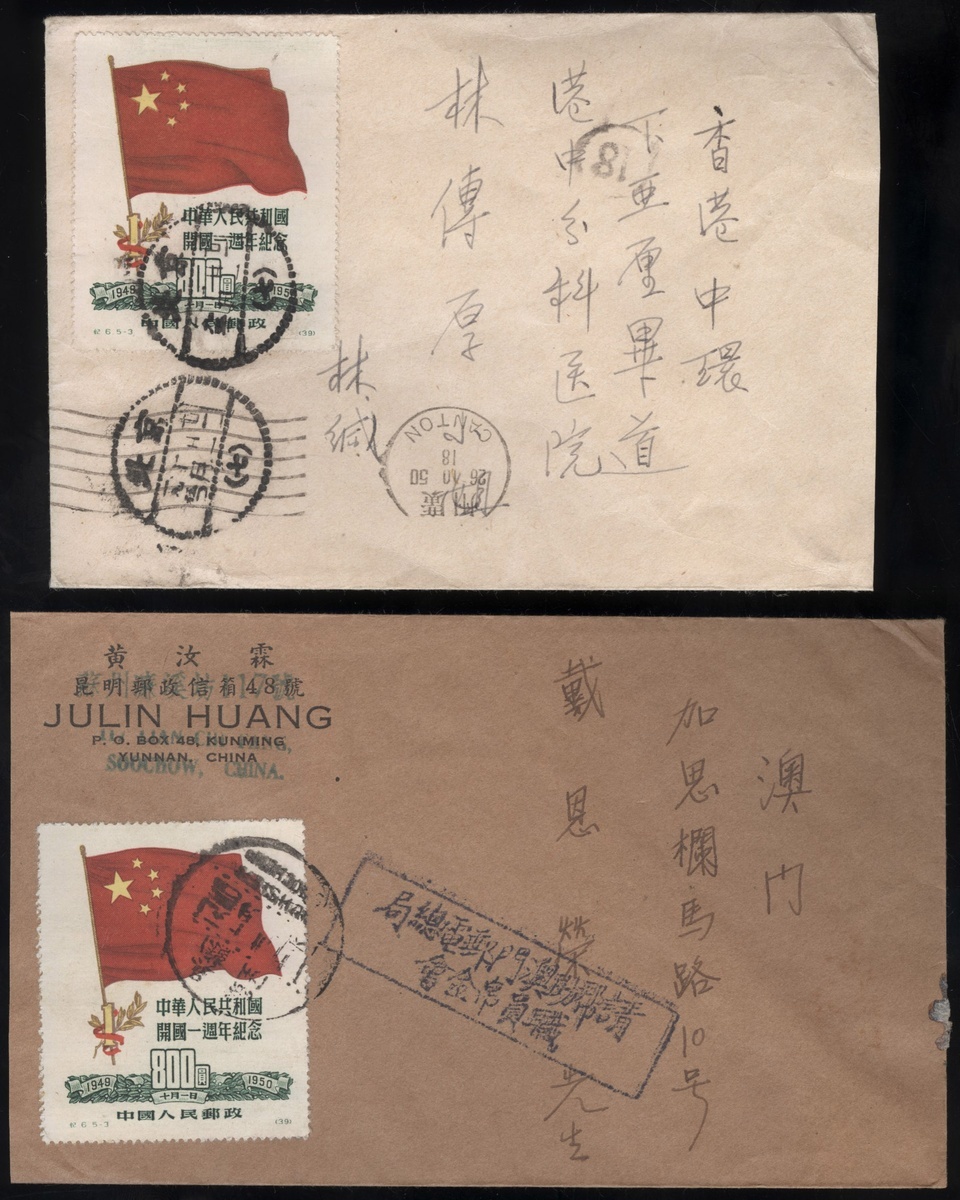 香港中環
下亞厘畢道
港中分科医院
林傳厚
林緘
中華人民共和國
開國一週年紀念
800圓
1949 1950
十月一日
中國人民郵政
紀6.5-3 (39)
北京
(七)
北京
(七)
18
CANTON
2
18
26 50
廣
黃汝霖
昆明郵政信箱48號
JULIN HUANG
P. O. BOX 48, KUNMING
YUNNAN, CHINA
17號
SOOCHOW, CHINA.
澳门
加思欄馬路10号
戴恩榮先生
請幫助澳門郵電總局
職員帛金會
中華人民共和國
開國一週年紀念
800圓
1949 1950
十月一日
中國人民郵政
紀6.5-3 (39)